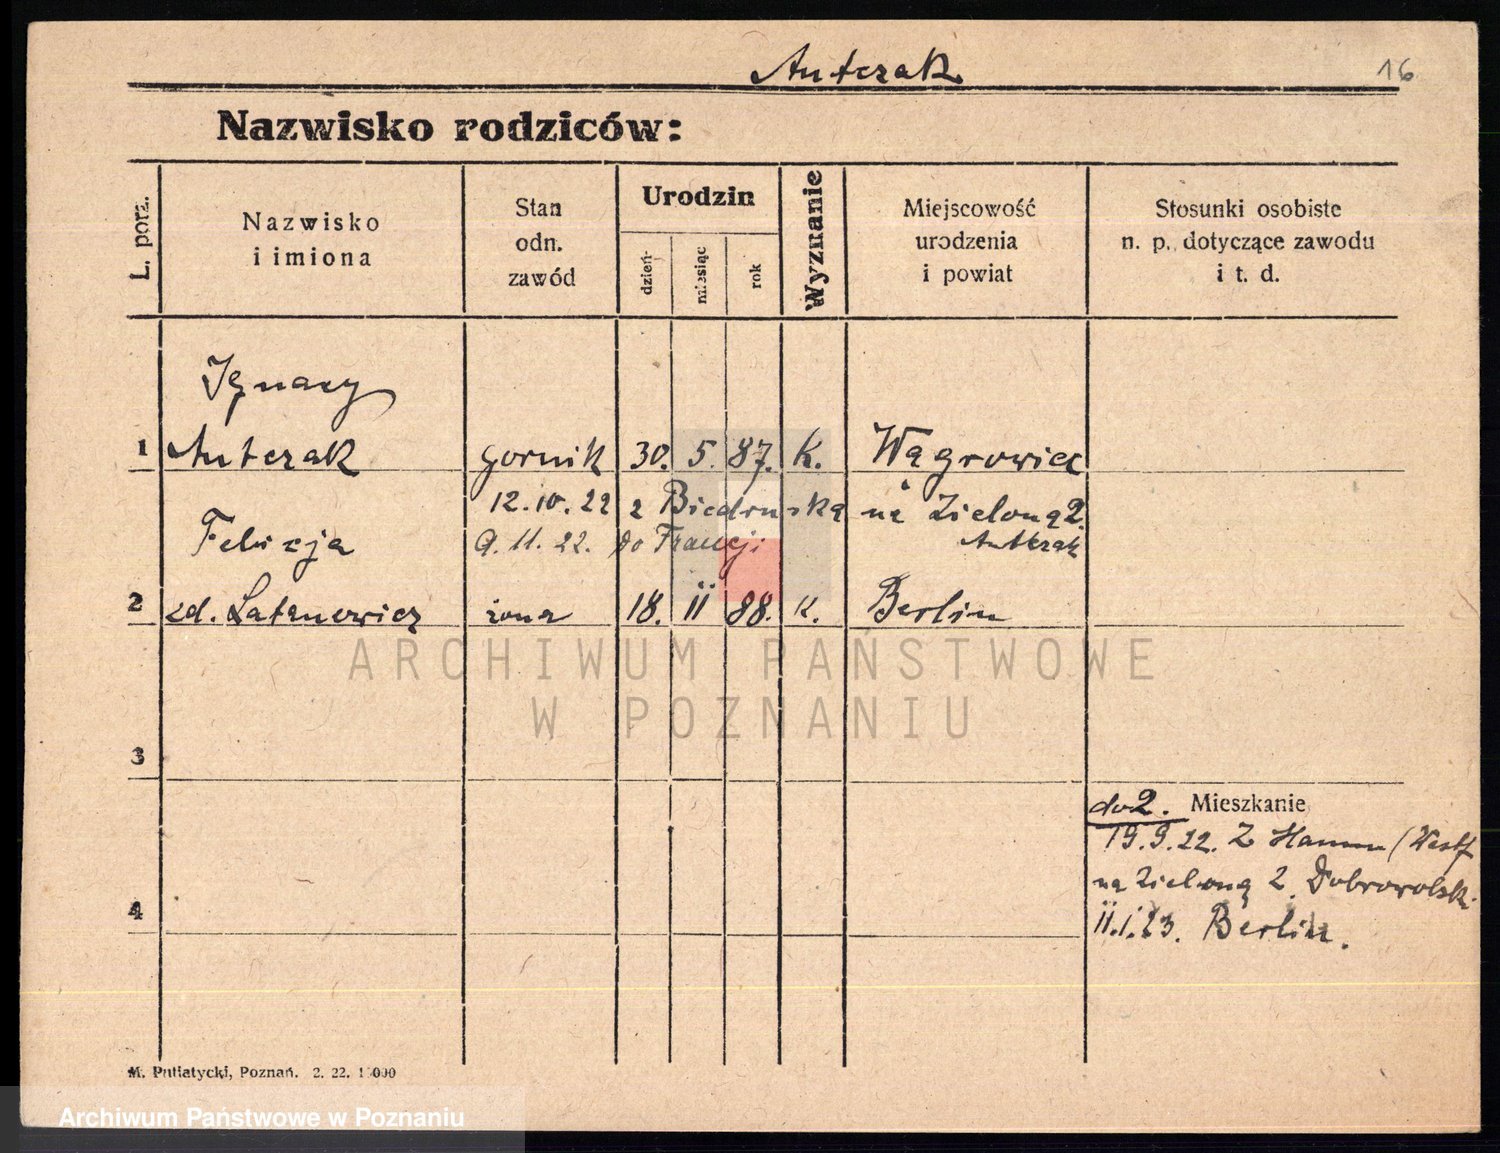 Antczak
16
Nazwisko rodziców:
L. porz.
Nazwisko
i imiona
Stan
odn.
zawód
Urodzin
dzień
miesiąc
rok
Wyznanie
Miejscowość
urodzenia
i powiat
Stosunki osobiste
n. p. dotyczące zawodu
i t. d.
Ignacy
1 Antczak gornik 30. 5. 87. K. Wągrowiec
12.10.22 z Biedruska na Zieloną 2.
Antczak
Felicja
9. 11. 22. do Francji
2 zd. Latanowicz żona 18. II 88. K. Berlin
ARCHIWUM PAŃSTWOWE
W POZNANIU
3
do 2. Mieszkanie
19.9.22. Z Hamm (Westf
na Zieloną 2 Dobrowolski
4
II.1.23. Berlin.
M. Putiatycki, Poznań. 2. 22.
Archiwum Państwowe w Poznaniu